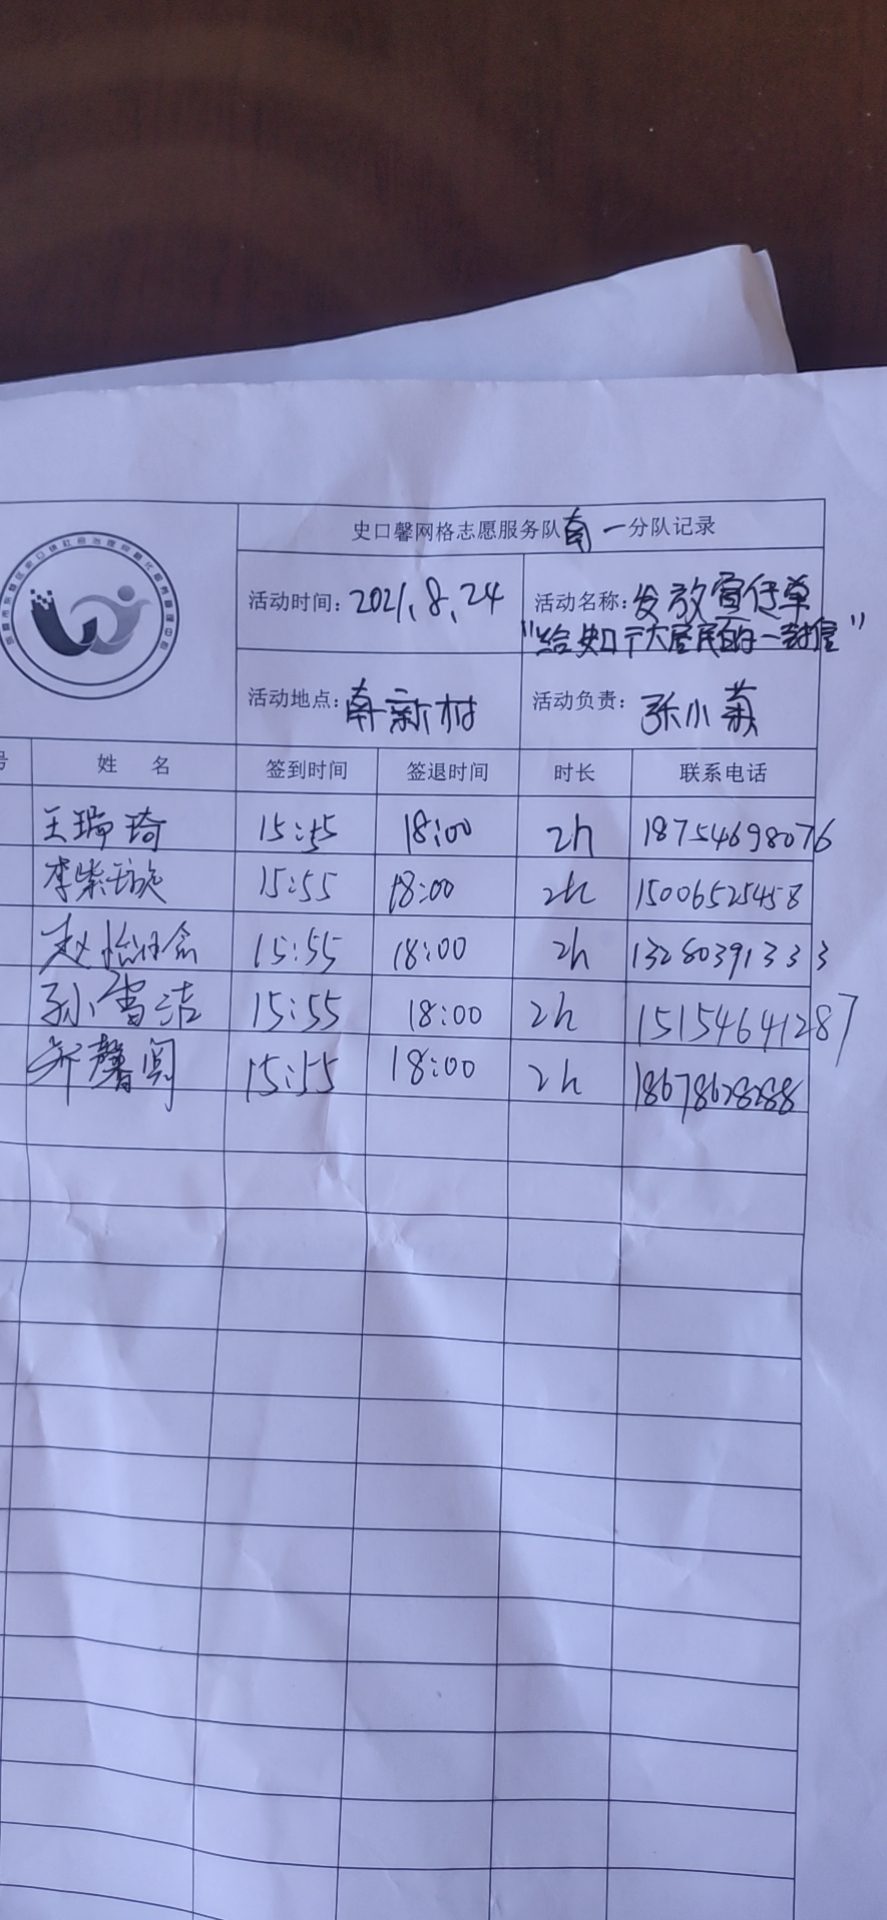 史口馨网格志愿服务队南一分队记录
活动时间: 2021.8.24 活动名称: 发放宣传单
"给史口广大居民的一封信"
活动地点: 南新村 活动负责: 张小菊
号 姓 名 签到时间 签退时间 时长 联系电话
王瑞琦 15:55 18:00 2h 18754698076
李紫璇 15:55 18:00 2h 15006525458
赵 15:55 18:00 2h 13280391333
孙雪洁 15:55 18:00 2h 15154641287
馨阅 15:55 18:00 2h 18678628288